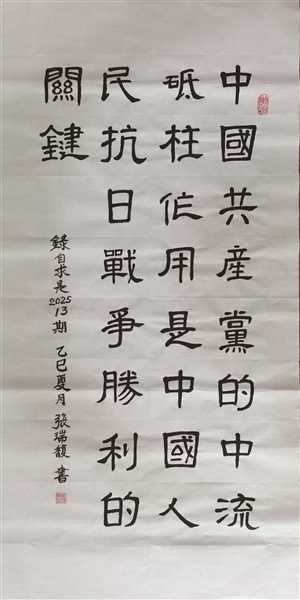 中國共産黨的中流
砥柱作用是中國人
民抗日戰爭勝利的
關鍵
錄自求是2025 13期 乙巳夏月 張瑞馥 書